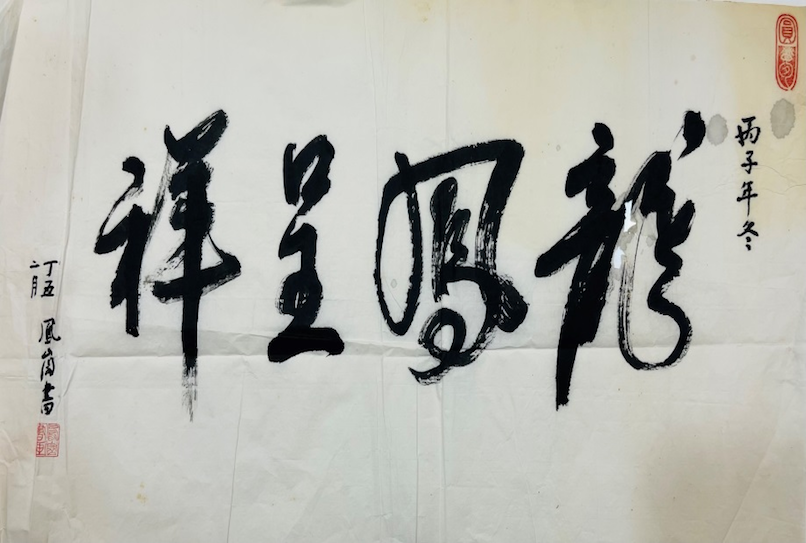 丙子年冬
龍鳳呈祥
丁丑
二月
鳳崗書